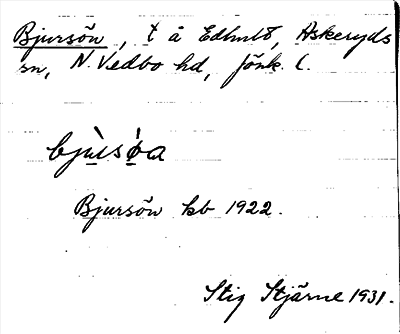 Bjursön, t å Edhult, Askeryds
sn, N. Vedbo hd, Jönk. l.
bjùsø̀a
Bjursön kb 1922.
Stig Stjärne 1931.